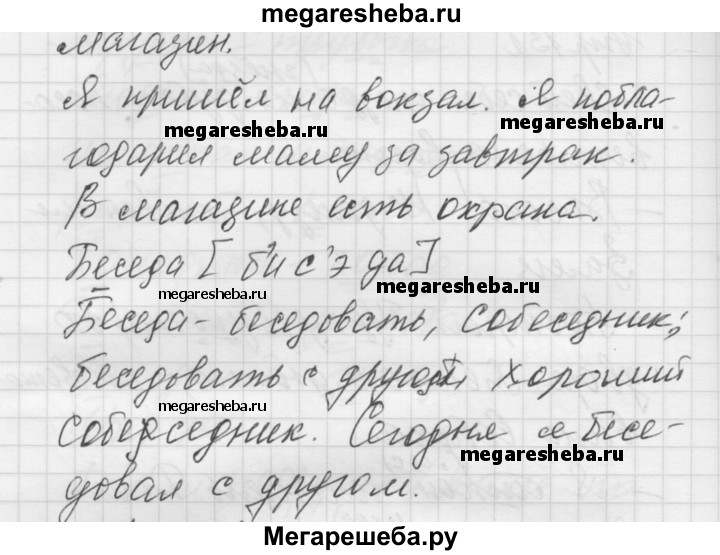 megaresheba.ru
магазин.
Я пришёл на вокзал. Я побла-
megaresheba.ru megaresheba.ru
годарил маму за завтрак.
В магазине есть охрана.
Беседа [б'ис'эда]
megaresheba.ru megaresheba.ru
Беседа - беседовать, собеседник;
беседовать с другом, хороший
megaresheba.ru
собеседник. Сегодня я бесе-
megaresheba.ru
довал с другом.
Мегарешеба.ру